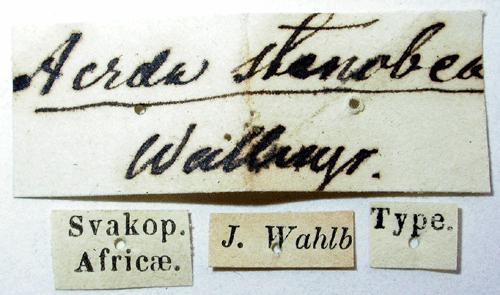 Acræa stenobea
Wallengr.
Svakop.
Africæ.
J. Wahlb
Type.